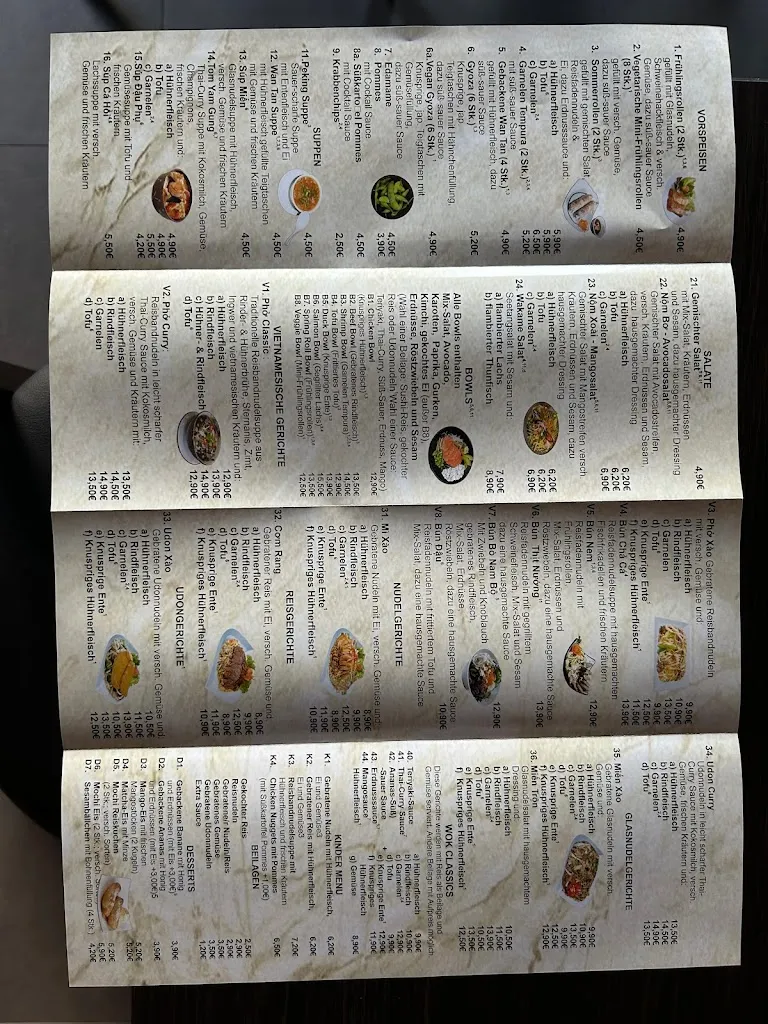 VORSPEISEN
1. Frühlingsrollen (2 Stk.)
gefüllt mit Glasnudeln,
Schweinehackfleisch & versch.
Gemüse, dazu süß-sauer Sauce 4,90€
2. Vegetarische Mini-Frühlingsrollen
(8 Stk.) 4,50€
gefüllt mit versch. Gemüse,
dazu süß-sauer Sauce
3. Sommerrollen (2 Stk.)
gefüllt mit gemischten Salat,
Reisfadennudeln &
Ei, dazu Erdnusssauce
a) Hühnerfleisch 5,90€
b) Tofu 5,90€
c) Garnelen 6,50€
4. Garnelen Tempura (2 Stk.) 5,20€
mit süß-sauer Sauce
5. Gebackene Wan Tan (4 Stk.) 4,90€
gefüllt mit Hühnerfleisch, dazu
süß-sauer Sauce
6. Gyoza (6 Stk.) 5,20€
Knusprige jap.
Teigtaschen mit Hähnchenfüllung,
dazu süß-sauer Sauce
6a. Vegan Gyoza (6 Stk.) 4,90€
Knusprige jap. Teigtaschen mit
Gemüse
dazu süß-sauer Sauce
7. Edamame 4,50€
8. Pommes 3,90€
mit Cocktail Sauce
8a. Süßkartoffel Pommes 4,50€
mit Cocktail Sauce
9. Krabbenchips 2,50€
SUPPEN
11. Peking Suppe 4,50€
Sauer-scharfe Suppe
mit Entenfleisch und Ei
12. Wan Tan Suppe 4,50€
mit Hühnerfleisch gefüllte Teigtaschen
mit Gemüse und frischen Kräutern
13. Súp Miến 4,50€
Glasnudelsuppe mit Hühnerfleisch,
versch. Gemüse und frischen Kräutern
14. Tom Yum Gung
Thai-Curry Suppe mit Kokosmilch, Gemüse,
Champignons,
frischen Kräutern und
a) Hühnerfleisch 4,90€
b) Tofu 4,90€
c) Garnelen 5,50€
15. Súp Đậu Phụ 4,20€
Gemüsesuppe mit Tofu und
frischen Kräutern
16. Súp Cá Hồi 5,50€
Lachssuppe mit versch.
Gemüse und frischen Kräutern
SALATE
21. Gemischter Salat 4,90€
mit Mix-Salat, Kräutern, Erdnüssen
und Sesam, dazu hausgemachter Dressing
22. Nộm Bơ - Avocadosalat
Gemischter Salat mit Avocadostreifen,
versch. Kräutern, Erdnüssen und Sesam,
dazu hausgemachter Dressing
a) Hühnerfleisch 6,20€
b) Tofu 6,20€
c) Garnelen 6,90€
23. Nộm Xoài - Mangosalat
Gemischter Salat mit Mangostreifen, versch.
Kräutern, Erdnüssen und Sesam, dazu
hausgemachter Dressing
a) Hühnerfleisch 6,20€
b) Tofu 6,20€
c) Garnelen 6,90€
24. Wakame Salat
Seetangsalat mit Sesam und
a) flambierter Lachs 7,90€
b) flambierter Thunfisch 8,90€
BOWLS
Alle Bowls enthalten
Mix-Salat, Avocado,
Karotten, Paprika, Gurken,
Kimchi, gekochtes Ei (außer B8),
Erdnüsse, Röstzwiebeln und Sesam
(Wahl einer Beilage: Sushi-Reis, gekochter
Reis oder Reisbandnudeln; Wahl einer Sauce:
Teriyaki, Thai-Curry, Süß-Sauer, Erdnuss, Mango)
B1. Chicken Bowl 12,90€
(Knuspriges Hühnerfleisch)
B2. Beef Bowl (Gebratenes Rindfleisch) 13,50€
B3. Shrimp Bowl (Garnelen Tempura) 14,50€
B4. Tofu Bowl (Frittiertes Tofu) 12,90€
B5. Duck Bowl (Knusprige Ente) 13,90€
B6. Salmon Bowl (Gegrillter Lachs) 15,50€
B7. Spring Roll Bowl (Frühlingsrollen) 13,50€
B8. Veggie Bowl (Mini-Frühlingsrollen) 12,50€
VIETNAMESISCHE GERICHTE
V1. Phở Classic
Traditionelle Reisbandnudelsuppe aus
Rinder- & Hühnerbrühe, Sternanis, Zimt,
Ingwer und vietnamesischen Kräutern und:
a) Hühnerfleisch 12,90€
b) Rindfleisch 13,90€
c) Hühner- & Rindfleisch 14,90€
d) Tofu 12,90€
V2. Phở Curry
Reisbandnudeln in leicht scharfer
Thai-Curry Sauce mit Kokosmilch,
versch. Gemüse und Kräutern mit:
a) Hühnerfleisch 13,50€
b) Rindfleisch 14,50€
c) Garnelen 14,90€
d) Tofu 13,50€
V3. Phở Xào Gebratene Reisbandnudeln
mit versch. Gemüse und
a) Hühnerfleisch 9,90€
b) Rindfleisch 10,90€
c) Garnelen 13,50€
d) Tofu 9,90€
e) Knusprige Ente 12,50€
f) Knuspriges Hühnerfleisch 11,50€
V4. Bún Chả Cá 13,50€
Reisfadennudelsuppe mit hausgemachten
Fischfrikadellen und frischen Kräutern
V5. Bún Nem 12,90€
Reisfadennudeln mit
Frühlingsrollen,
Mix-Salat, Erdnüssen und
Röstzwiebeln, dazu eine hausgemachte Sauce
V6. Bún Thịt Nướng 13,90€
Reisfadennudeln mit gegrilltem
Schweinefleisch, Mix-Salat und Sesam
dazu eine hausgemachte Sauce
V7. Bún Bò Nam Bộ 12,90€
Mit Zwiebeln und Knoblauch
gebratenes Rindfleisch,
Mix-Salat, Erdnüsse,
Röstzwiebeln, dazu eine hausgemachte Sauce
V8. Bún Đậu 10,90€
Reisfadennudeln mit frittiertem Tofu und
Mix-Salat, dazu eine hausgemachte Sauce
NUDELGERICHTE
31. Mì Xào
Gebratene Nudeln mit Ei, versch. Gemüse und:
a) Hühnerfleisch 8,90€
b) Rindfleisch 9,90€
c) Garnelen 12,50€
d) Tofu 8,90€
e) Knusprige Ente 11,90€
f) Knuspriges Hühnerfleisch 10,90€
REISGERICHTE
32. Cơm Rang
Gebratener Reis mit Ei, versch. Gemüse und:
a) Hühnerfleisch 8,90€
b) Rindfleisch 9,90€
c) Garnelen 12,50€
d) Tofu 8,90€
e) Knusprige Ente 11,90€
f) Knuspriges Hühnerfleisch 10,90€
UDONGERICHTE
33. Udon Xào
Gebratene Udonnudeln mit versch. Gemüse und:
a) Hühnerfleisch 10,50€
b) Rindfleisch 11,50€
c) Garnelen 13,90€
d) Tofu 10,50€
e) Knusprige Ente 13,50€
f) Knuspriges Hühnerfleisch 12,50€
34. Udon Curry
Udonnudeln in leicht scharfer Thai-
Curry Sauce mit Kokosmilch, versch.
Gemüse, frischen Kräutern und:
a) Hühnerfleisch 13,50€
b) Rindfleisch 14,50€
c) Garnelen 14,90€
d) Tofu 13,50€
GLASNUDELGERICHTE
35. Miến Xào
Gebratene Glasnudeln mit versch.
Gemüse und:
a) Hühnerfleisch 9,90€
b) Rindfleisch 10,90€
c) Garnelen 13,50€
d) Tofu 9,90€
e) Knusprige Ente 12,90€
f) Knuspriges Hühnerfleisch 12,90€
36. Miến Trộn
Glasnudelsalat mit hausgemachtem
Dressing und:
a) Hühnerfleisch 10,50€
b) Rindfleisch 11,50€
c) Garnelen 13,50€
d) Tofu 10,50€
e) Knusprige Ente 13,50€
f) Knuspriges Hühnerfleisch 12,50€
WOK-CLASSICS
Diese Gerichte werden mit Reis als Beilage und
Gemüse serviert. Andere Beilage mit Aufpreis möglich.
40. Teriyaki-Sauce
41. Thai-Curry-Sauce
42. Ananas(Süß
-Sauer-Sauce)
43. Erdnusssauce
44. Mangosauce
+
a) Hühnerfleisch 9,90€
b) Rindfleisch 10,90€
c) Garnelen 12,90€
d) Tofu 9,90€
e) Knusprige Ente 12,90€
f) Knuspriges
Hühnerfleisch 11,90€
g) Gemüse 8,90€
KINDER MENU
K1. Gebratene Nudeln mit Hühnerfleisch,
Ei und Gemüse 6,20€
K2. Gebratener Reis mit Hühnerfleisch,
Ei und Gemüse 6,20€
K3. Reisbandnudelsuppe mit
Hühnerfleisch und frischen Kräutern 7,20€
K4. Chicken Nuggets mit Pommes 6,50€
(mit Süßkartoffel Pommes +1,00€)
BEILAGEN
Gekochter Reis 2,50€
Gebratene Nudeln/Reis 3,90€
Reisnudeln 2,90€
Gebratenes Gemüse 3,50€
Gebratene Udonnudeln 3,50€
Extra Sauce 1,20€
DESSERTS
D1. Gebackene Banane mit Honig
und Erdnüssen (mit Eis +3,00€) 3,90€
D2. Gebackene Ananas mit Honig
und Erdnüssen (mit Eis +3,00€) 3,90€
D3. Mango-Eis mit frischen
Mangostücken (2 Kugeln) 5,20€
D4. Matcha-Eis mit Minze 5,20€
D5. Mochi Reiskuchen
(2 Stk., versch. Sorten) 5,20€
D6. Mochi Eis (2 Stk., versch. 5,90€
D7. Sesambällchen mit Bohnenfüllung (4 Stk.) 4,20€